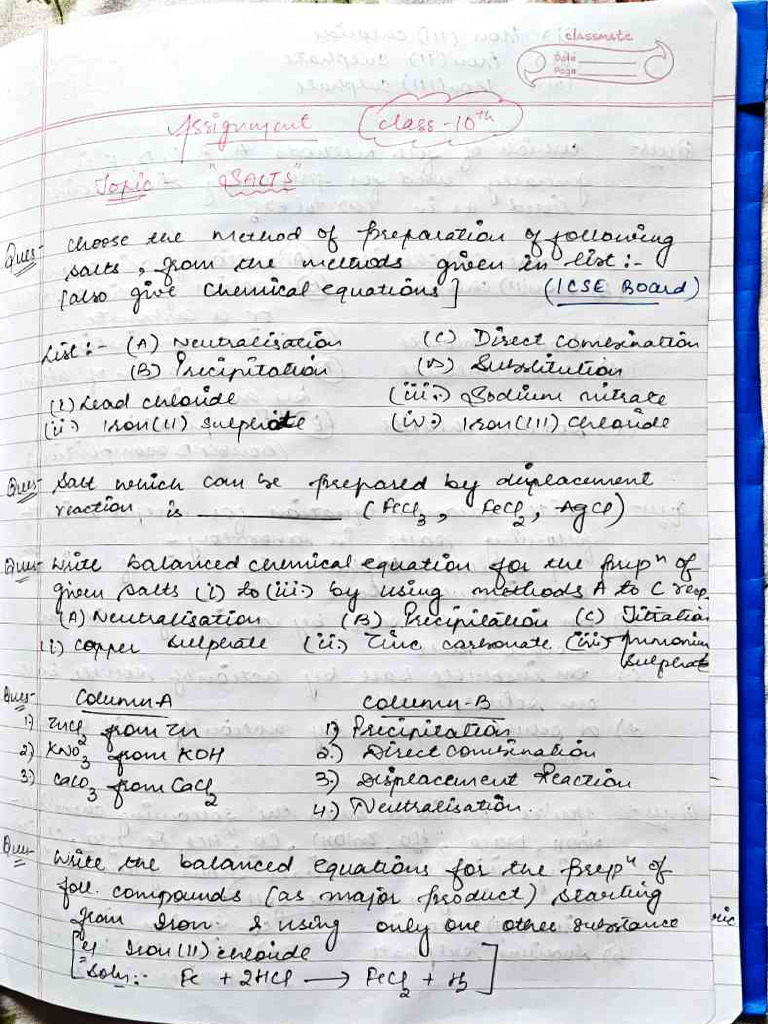 classmate
Date
Page
Assignment class-10th
Topic "SALTS"
Ques- Choose the method of preparation of following
salts, from the methods given in list :-
[also give Chemical equations] (ICSE Board)
List :- (A) Neutralisation (C) Direct Combination
(B) Precipitation (D) Substitution
(i) Lead chloride (iii.) Sodium nitrate
(ii) Iron(II) sulphate (iv.) Iron(III) chloride
Ques- Salt which can be prepared by displacement
reaction is ____________ (FeCl3, FeCl2, AgCl)
Ques- Write balanced chemical equation for the prepn of
given salts (i) to (iii.) by using methods A to C resp.
(A) Neutralisation (B) Precipitation (C) Titration
(i) Copper sulphate (ii.) Zinc carbonate (iii) Ammonium
sulphate
Ques- Column-A Column-B
1) ZnCl2 from Zn 1) Precipitation
2) KNO3 from KOH 2.) Direct Combination
3) CaCO3 from CaCl2 3) Displacement Reaction
4.) Neutralisation.
Ques- Write the balanced equations for the prepn of
foll. compounds (as major product) starting
from Iron & using only one other substance
ric
[eg Iron(II) chloride
Soln:- Fe + 2HCl ⟶ FeCl2 + H2]